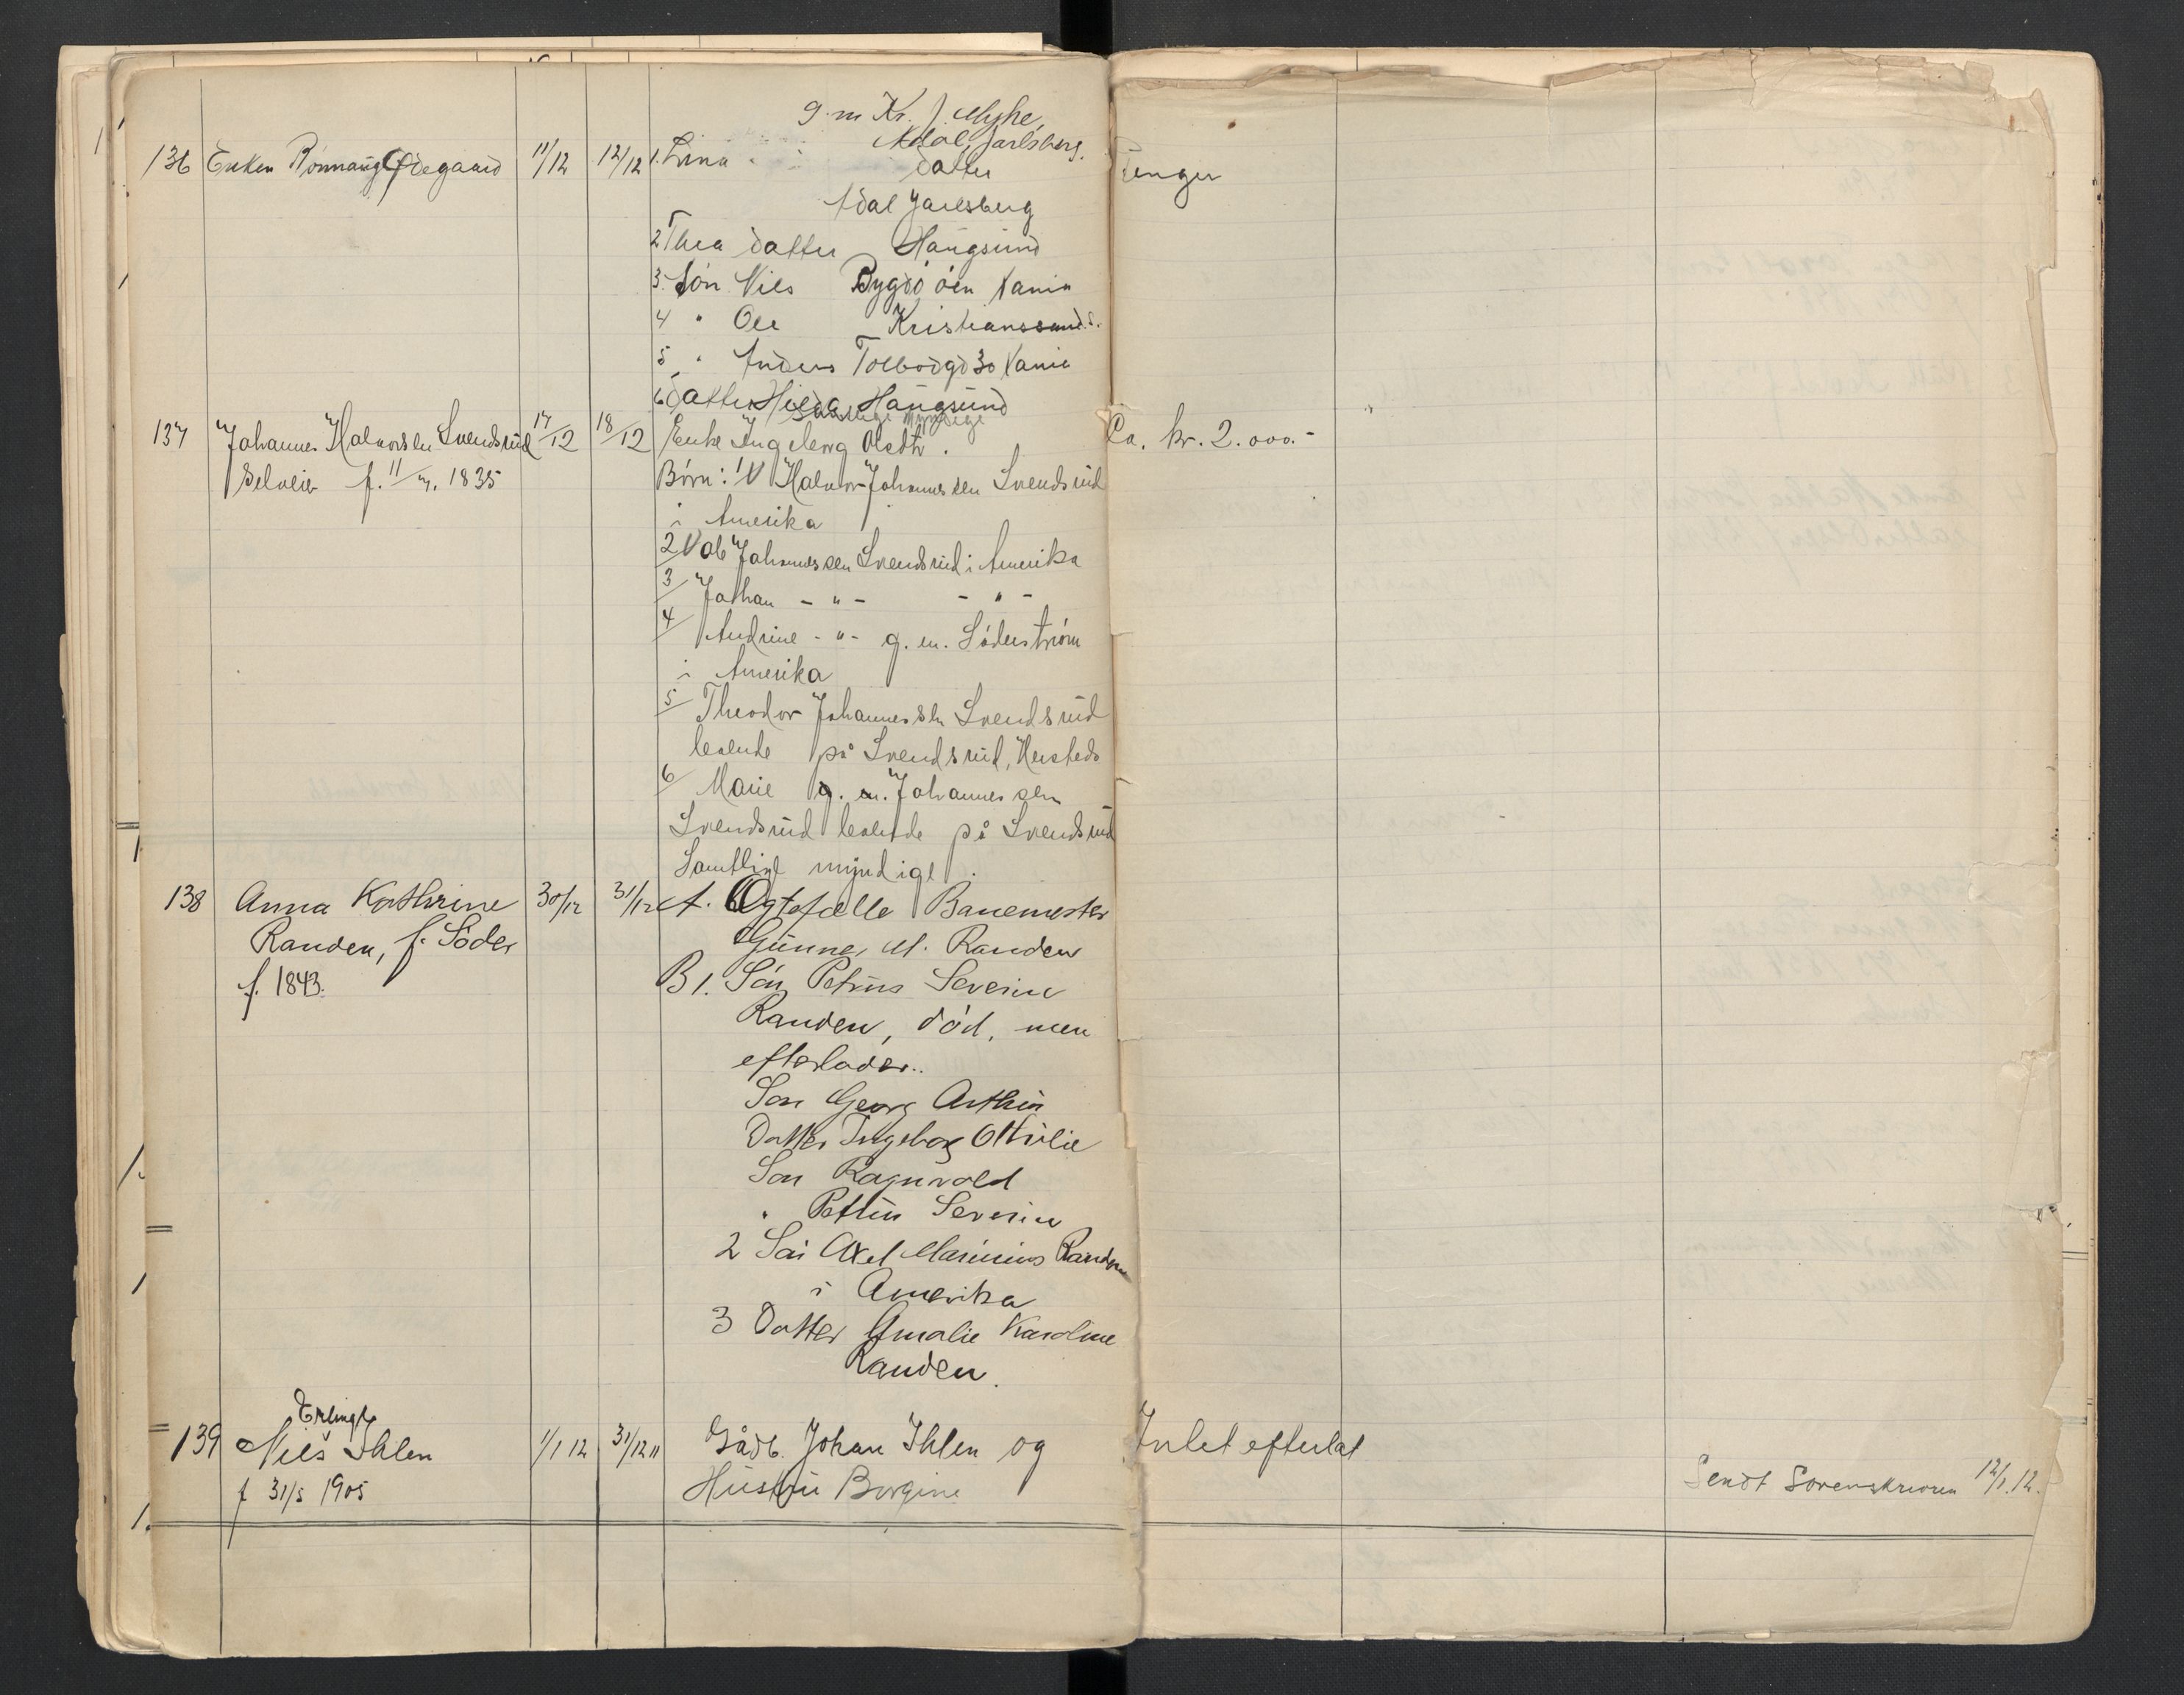 g. m Kr. J. Myhre,
Adal, Jarlsberg.
136 Enken Rønnaug Ødegaard 11/12 12/12 1. Lina datter Penger
Adal Jarlsberg
2 Thea datter Haugsund
3. Søn Nils Bygdö öen Kania
4 " Ole Kristianssund S.
5 " Anders Tolbodgd 30 Kania
6 datter Hilda Haugsund
Samtlige myndige
137 Johannes Halvorsen Svendsrud 17/12 18/12 Enke Ingeborg Olsdtr. Ca. kr. 2.000.-
Selveier f. 11/7. 1835 Børn: 1 Halvor Johannessen Svendsrud
i Amerika
2 Ole Johannessen Svendsrud i Amerika
3/ Johan - " - - " -
4/ Andrine - " - g. m. Søderstrøm
i Amerika
5/ Theodor Johannessen Svendsrud
boende på Svendsrud,
6/ Marie g. m. Johannessen
Svendsrud boende på Svendsrud
Samtlige myndige.
138 Anna Kathrine 30/12 31/12 A. Ægtefælle Banemester
Randen, f. Söder Gunner M. Randen
f. 1843. B 1. Søn Petrus Severin
Randen, död, men
efterlader..
Søn Georg Arthur
Datter Ingeborg Ottilie
Søn Ragnvald
" Petter Severin
2 Søn Axel Marinius Randen
i Amerika
3 Datter Amalie Karoline
Randen.
Erling
139 Nils Ihlen 1/1 12 31/12 11 Gådb. Johan Ihlen og Intet efterlat
f 31/5 1905 Hustru Borgine Sendt Sorenskriveren 12/1.12.